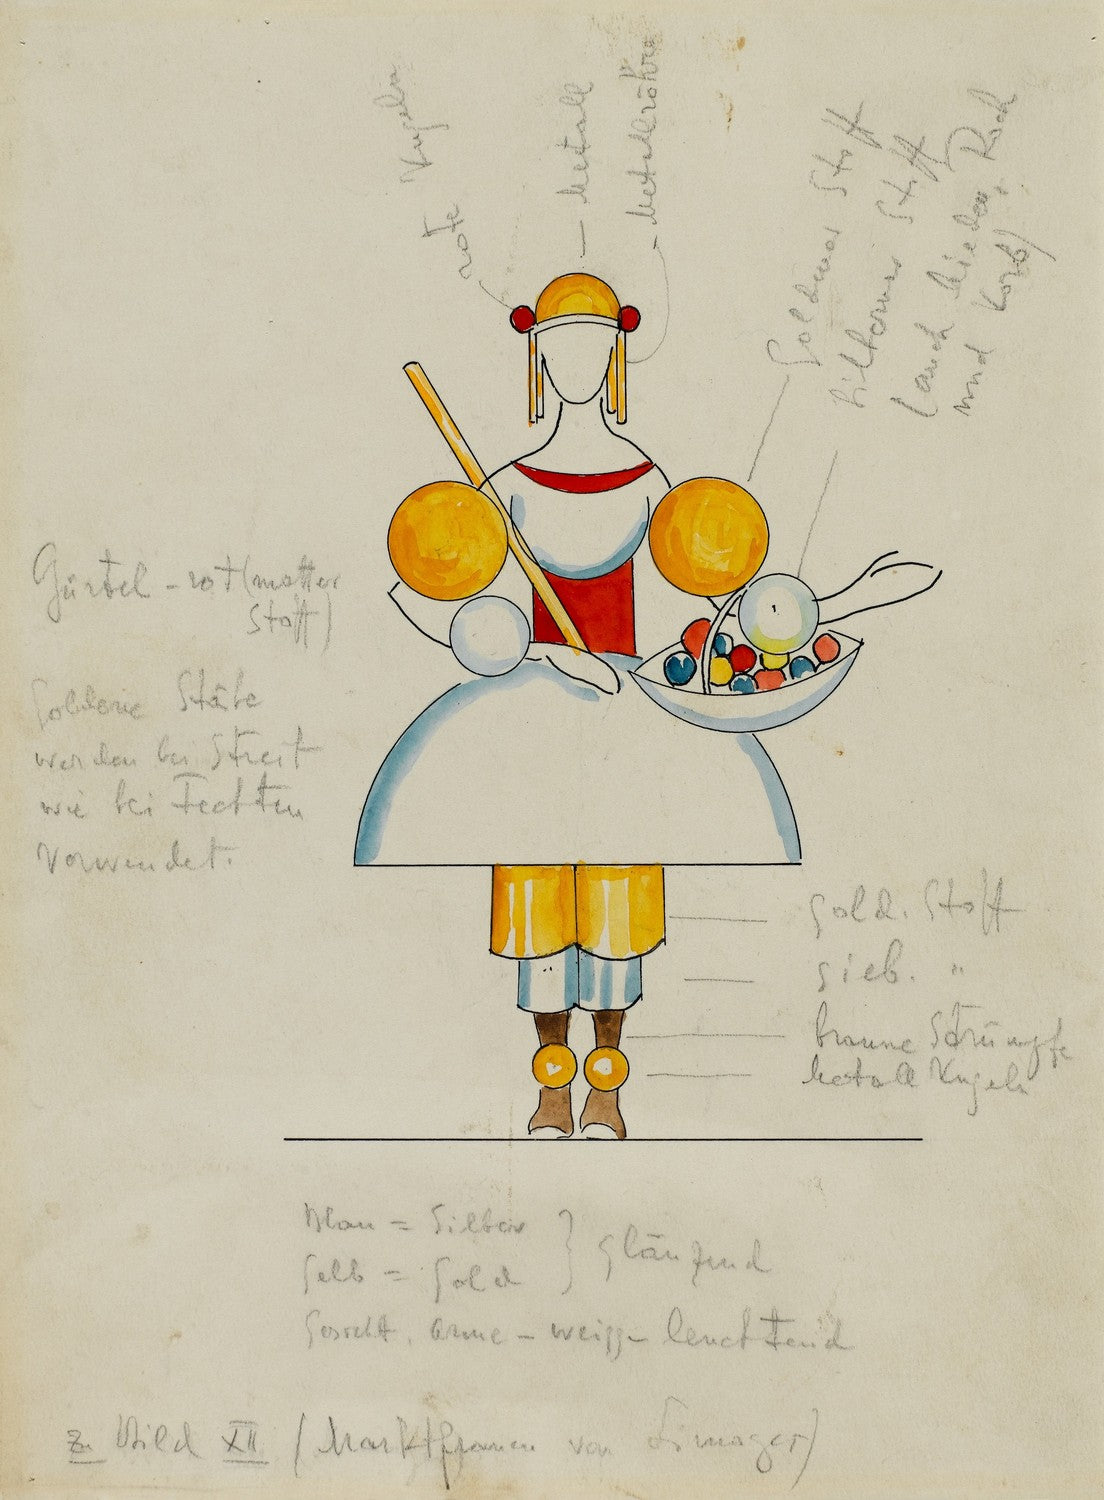 rote Kugeln
– Metall
– Metallröhre
Goldener Stoff
Silberner Stoff
(auch Mieder, Rock
und Korb)
Gürtel – rot (matter
Stoff)
Goldene Stäbe
werden bei Streit
wie bei Fechten
verwendet.
Gold. Stoff
Silb. "
braune Strümpfe
Metall Kugeln
Blau = Silber } glänzend
Gelb = Gold
Gesicht, Arme – weiss – leuchtend
zu Bild XII (Marktfrauen von Limoges)